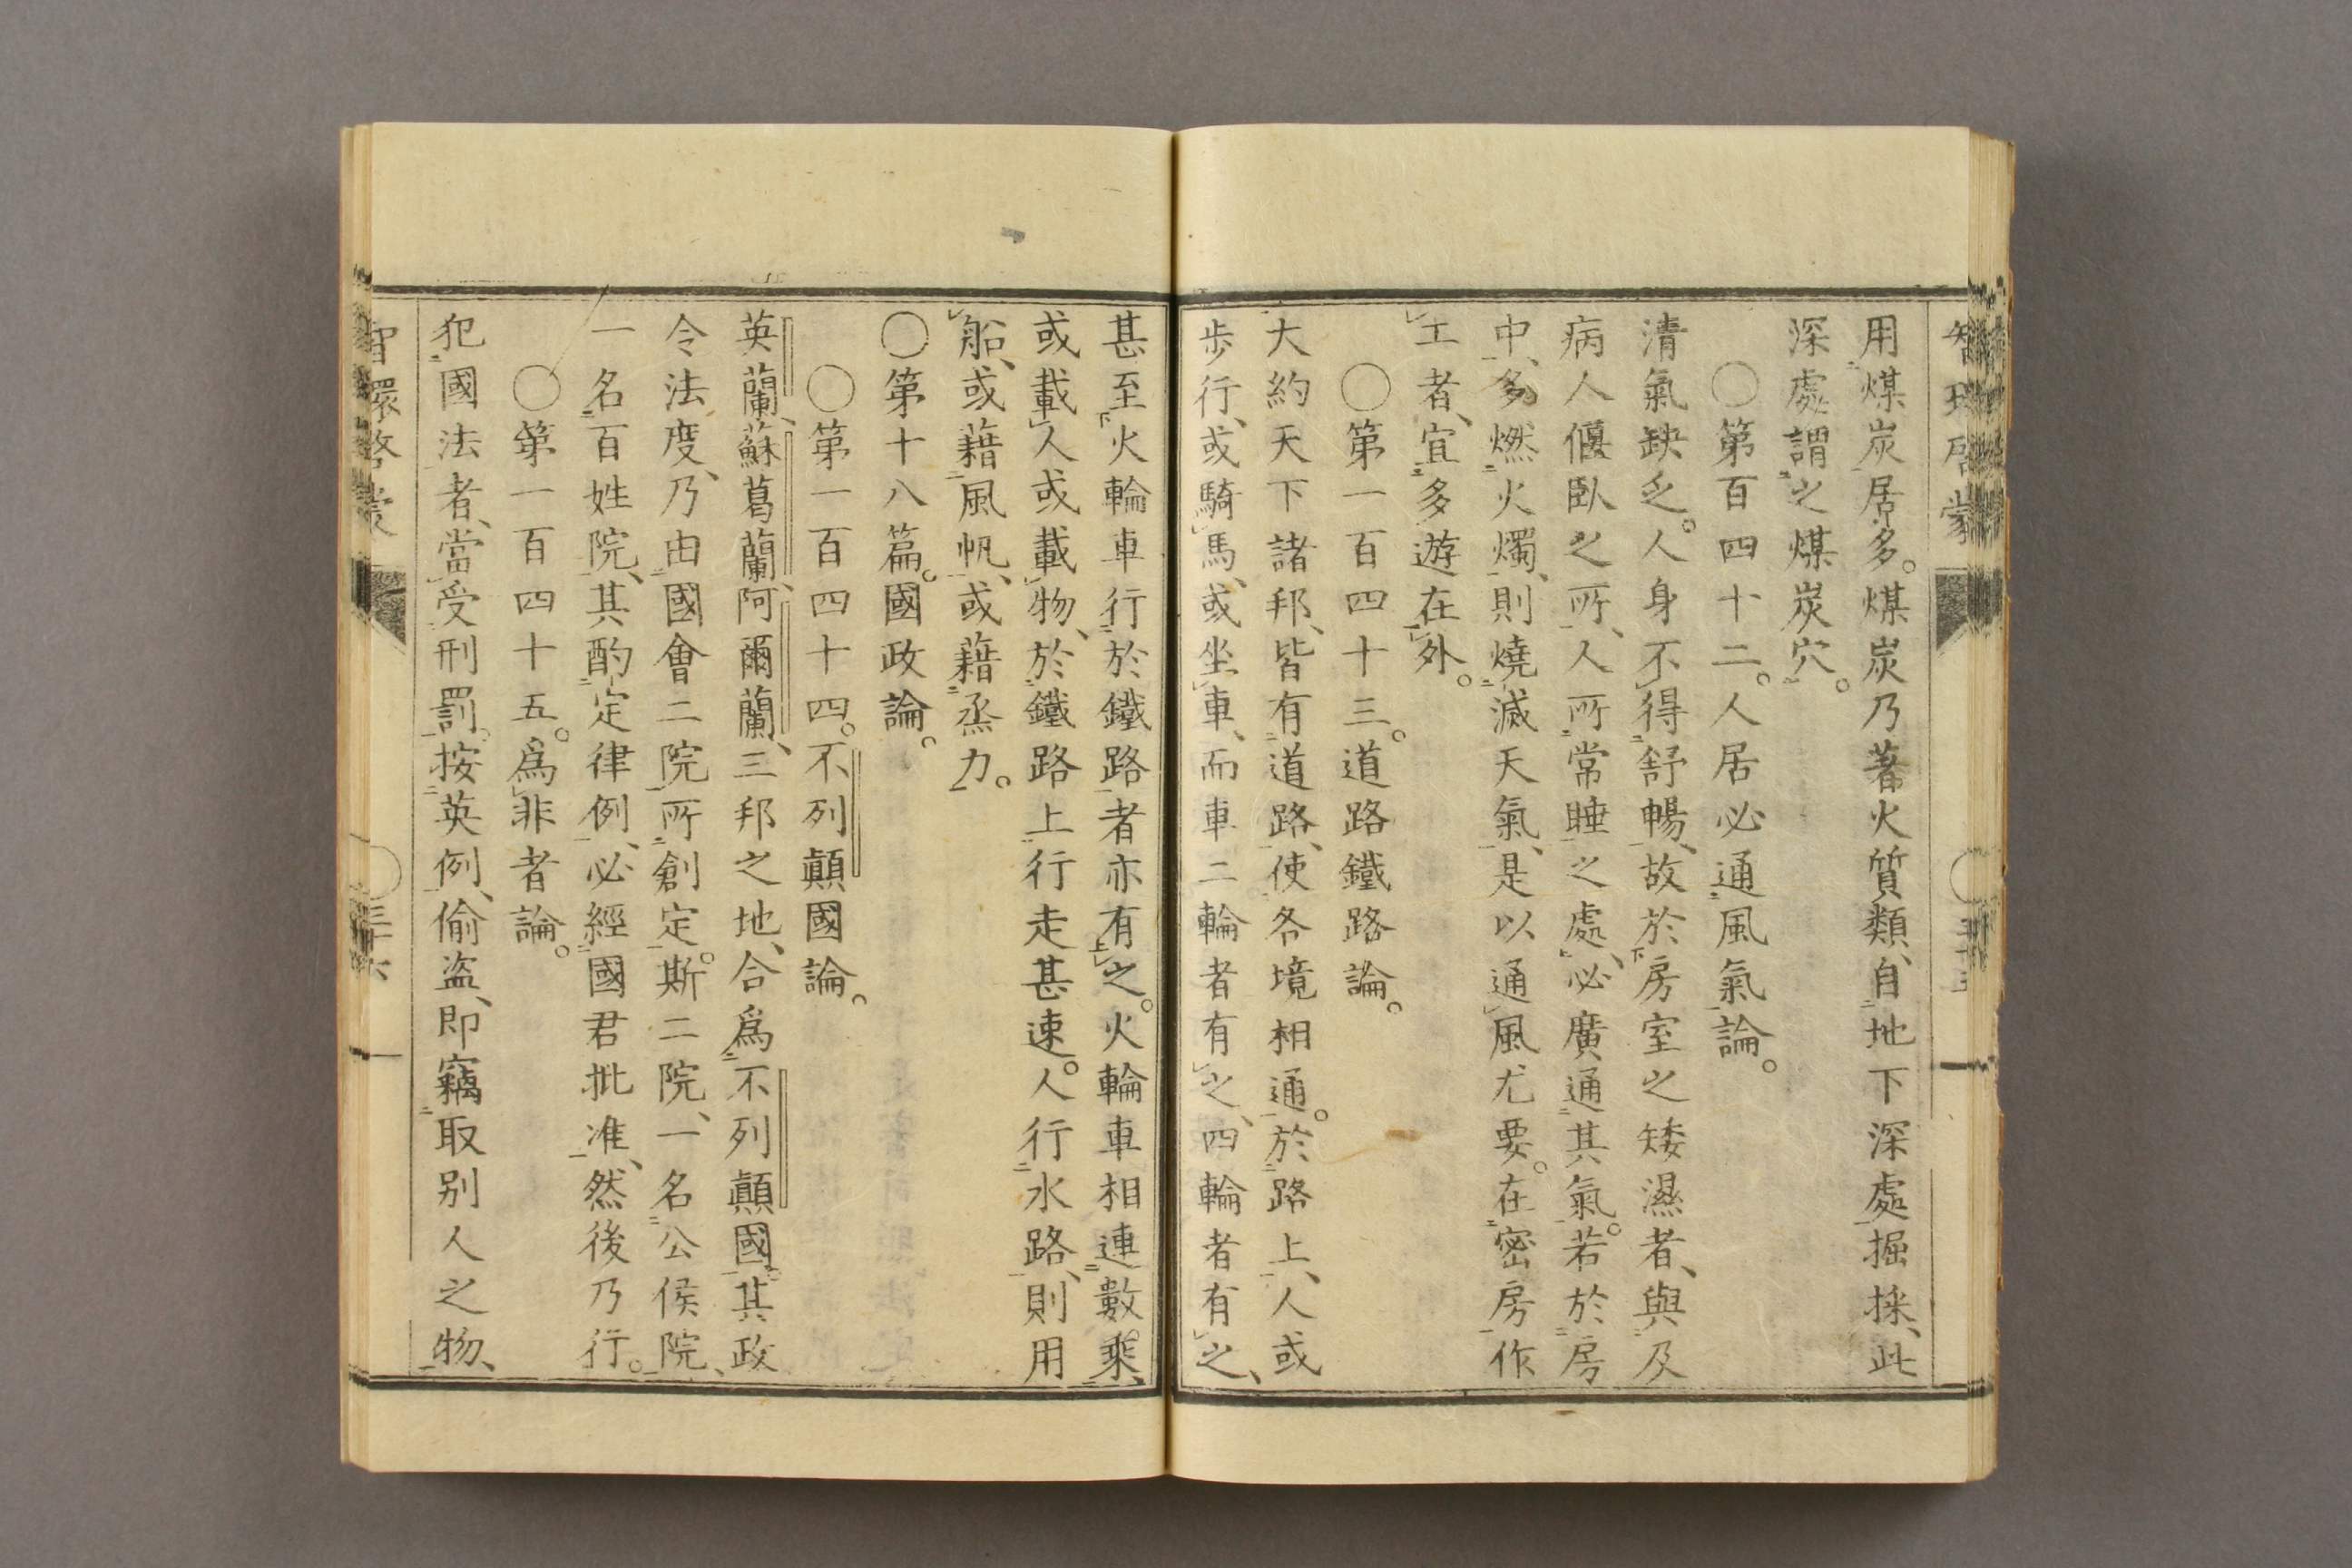 用煤炭居多。煤炭乃蓄火質類、自地下深處掘採、此
深處謂之煤炭穴。
○第百四十二。人居必通風氣論。
清氣缺乏。人身不得舒暢、故於房室之矮濕者、與及
病人偃臥之所、人所常睡之處、必廣通其氣。若於房
中、多燃火燭、則燒滅天氣、是以通風尤要。在密房作
工者、宜多遊在外。
○第一百四十三。道路鐵路論。
大約天下諸邦、皆有道路、使各境相通。於路上、人或
歩行、或騎馬、或坐車、而車二輪者有之、四輪者有之、
甚至火輪車行於鐵路者亦有之。火輪車相連數乘、
或載人或載物、於鐵路上行走甚速。人行水路、則用
船、或藉風帆、或藉烝力。
○第十八篇。國政論。
○第一百四十四。不列顛國論。
英蘭、蘇葛蘭、阿爾蘭、三邦之地、合爲不列顛國。其政
令法度、乃由國會二院所創定。斯二院、一名公侯院、
一名百姓院、其酌定律例、必經國君批准、然後乃行。
○第一百四十五。爲非者論。
犯國法者、當受刑罰。按英例、偷盗、即竊取別人之物、
智環啓蒙